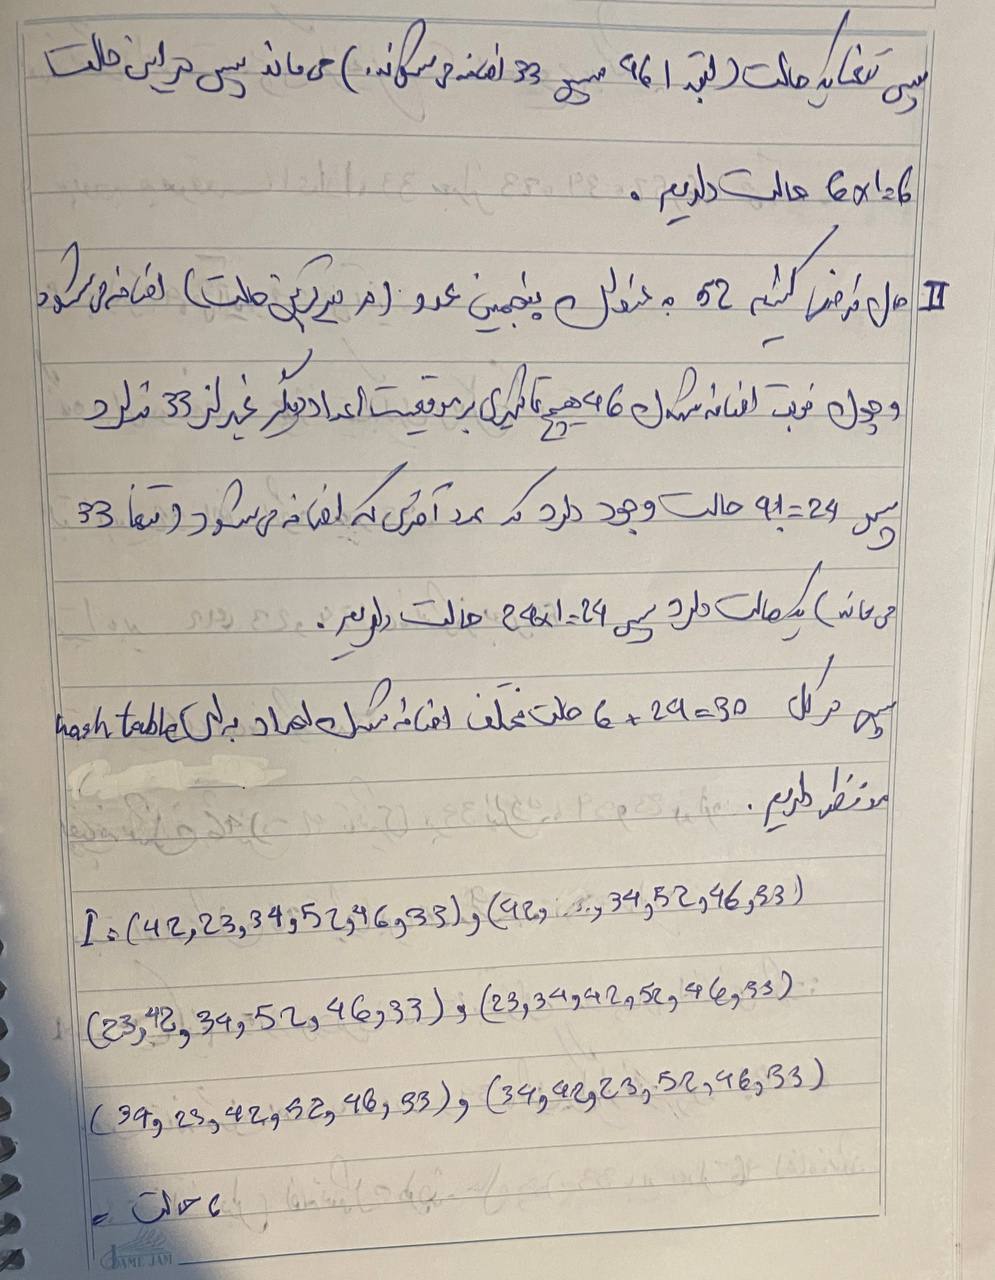 پس تنها یک حالت (ابتدا 46 سپس 33 اضافه می‌شوند.) می‌ماند پس در این حالت
6x1=6 حالت داریم.
II حال فرض کنید 52 به عنوان پنجمین عدد (در دیگر این حالت) اضافه می‌شود
و چون نوبت اضافه شدن 46 هیچ تاثیری بر موقعیت اعداد دیگر غیر از 33 ندارد
پس 4!=24 حالت وجود دارد که عدد آخری که اضافه می‌شود (تنها 33
می‌ماند) یک حالت دارد پس 24x1=24 حالت داریم.
پس در کل 6+24=30 حالت مختلف اضافه شدن اعداد برای hash table
مدنظر داریم.
I: (42,23,34,52,46,33), (42, ,34,52,46,33)
(23,42,34,52,46,33), (23,34,42,52,46,33)
(34,23,42,52,46,33), (34,42,23,52,46,33)
= 6 حالت
GAME JAM